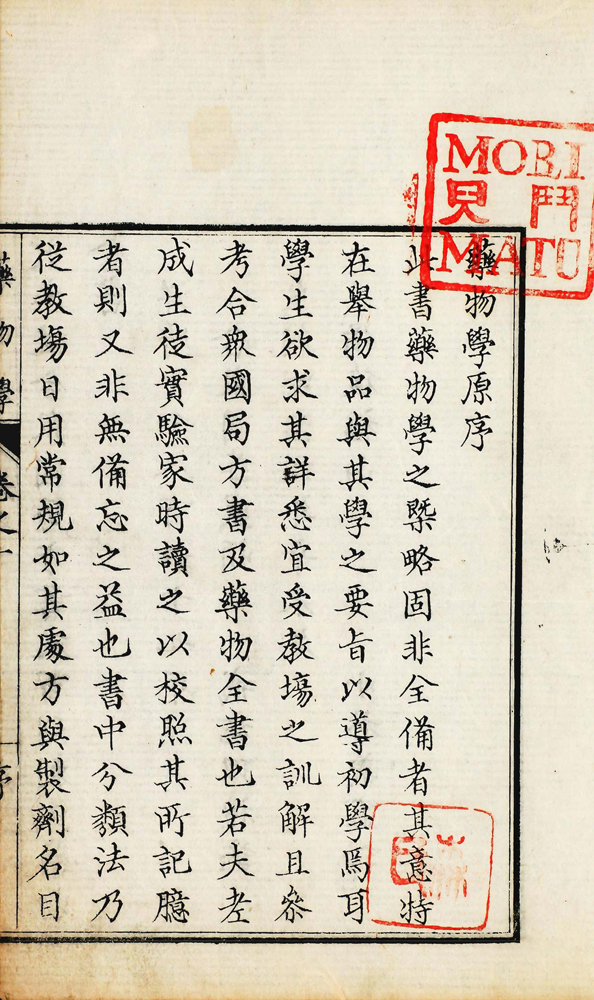 藥物學原序
此書藥物學之槩略固非全備者其意特
在舉物品與其學之要旨以導初學焉耳
學生欲求其詳悉宜受教塲之訓解且參
考合衆國局方書及藥物全書也若夫老
成生徒實驗家時讀之以校照其所記臆
者則又非無備忘之益也書中分類法乃
從教塲日用常規如其處方與製劑名目
藥物學 卷之一 序
MORI
MATU